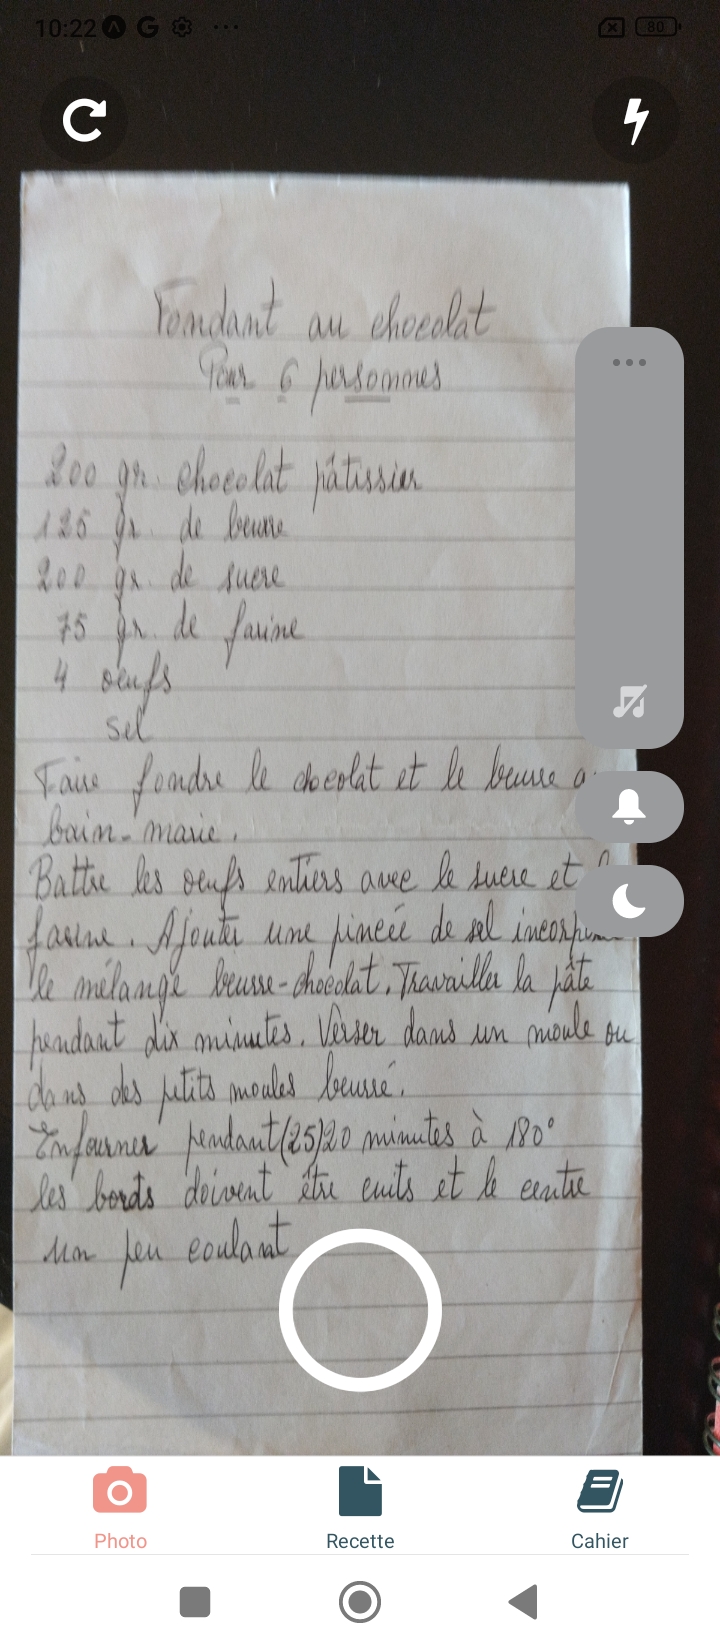 10:22
80
Fondant au chocolat
Pour 6 personnes
200 gr. chocolat pâtissier
125 gr. de beurre
200 gr. de sucre
75 gr. de farine
4 oeufs
sel
Faire fondre le chocolat et le beurre
bain-marie.
Battre les oeufs entiers avec le sucre et
farine. Ajouter une pincée de sel
le mélange beurre-chocolat. Travailler la pâte
pendant dix minutes. Verser dans un moule ou
dans des petits moules beurré.
Enfourner pendant (25) 20 minutes à 180°
les bords doivent être cuits et le centre
un peu coulant
Photo
Recette
Cahier